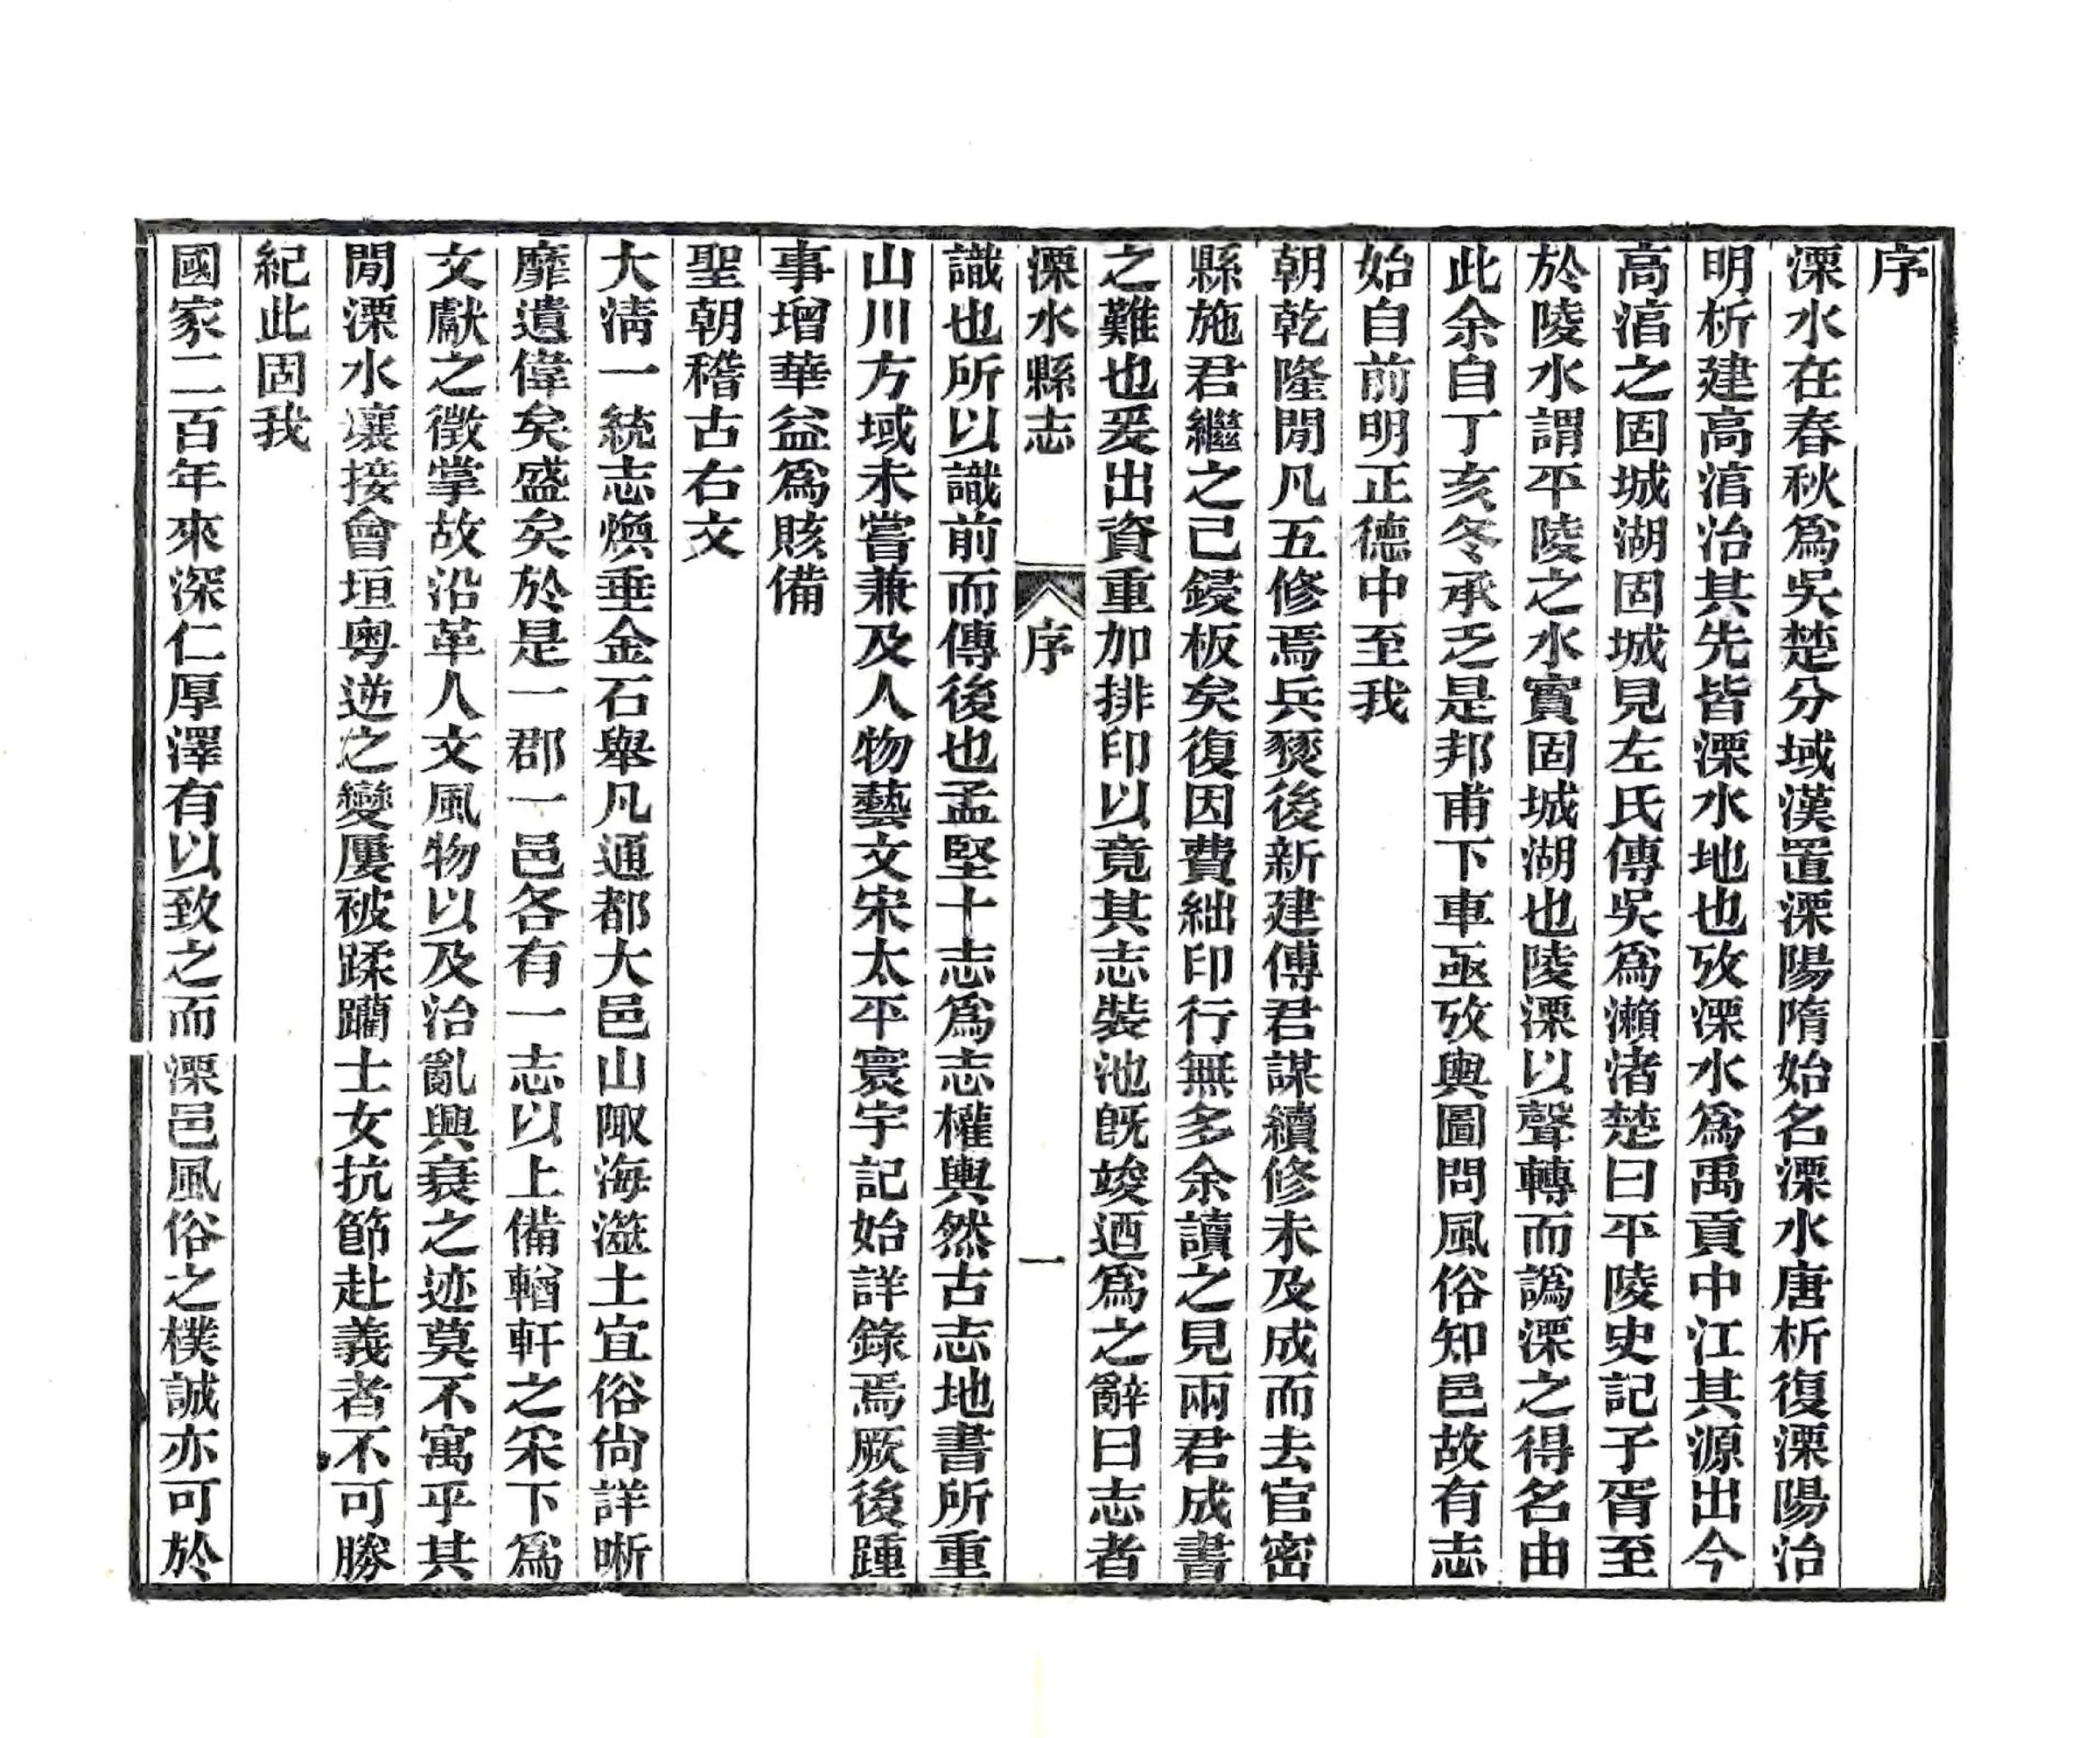 序
溧水在春秋爲吳楚分域漢置溧陽隋始名溧水唐析復溧陽治
明析建高湻治其先皆溧水地也攷溧水爲禹貢中江其源出今
高湻之固城湖固城見左氏傳吳爲瀨渚楚曰平陵史記子胥至
於陵水謂平陵之水實固城湖也陵溧以聲轉而譌溧之得名由
此余自丁亥冬承乏是邦甫下車亟攷輿圖問風俗知邑故有志
始自前明正德中至我
朝乾隆閒凡五修焉兵燹後新建傅君謀續修未及成而去官密
縣施君繼之已鋟板矣復因費絀印行無多余讀之見兩君成書
之難也爰出資重加排印以竟其志裝池旣竣迺爲之辭曰志者
溧水縣志 序 一
識也所以識前而傳後也孟堅十志爲志權輿然古志地書所重
山川方域未嘗兼及人物藝文宋太平寰宇記始詳錄焉厥後踵
事增華益爲賅備
聖朝稽古右文
大淸一統志煥垂金石舉凡通都大邑山陬海澨土宜俗尙詳晰
靡遺偉矣盛矣於是一郡一邑各有一志以上備輶軒之采下爲
文獻之徵掌故沿革人文風物以及治亂興衰之迹莫不寓乎其
閒溧水壤接會垣粵逆之變屢被蹂躪士女抗節赴義者不可勝
紀此固我
國家二百年來深仁厚澤有以致之而溧邑風俗之樸誠亦可於